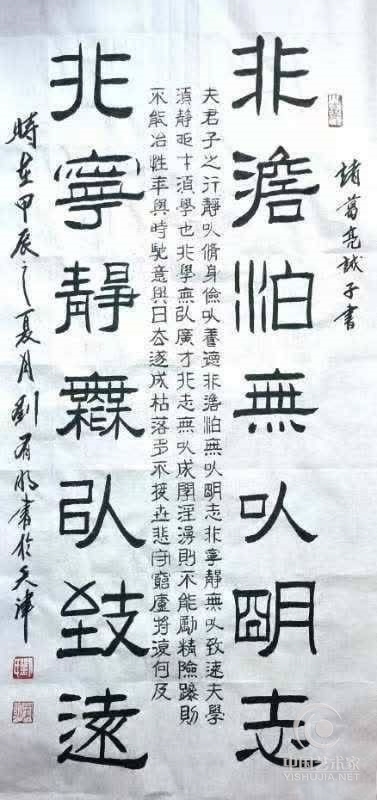 諸葛亮誡子書
非澹泊無以明志
夫君子之行靜以脩身儉以養德非澹泊無以明志非寧靜無以致遠夫學
須静也才須學也非學無以廣才非志無以成學淫漫則不能勵精險躁則
不能治性年與時馳意與日去遂成枯落多不接世悲守窮廬將復何及
非寧靜無以致遠
時在甲辰之夏月劉有明書於天津
中国艺术家
YISHUJIA.NET